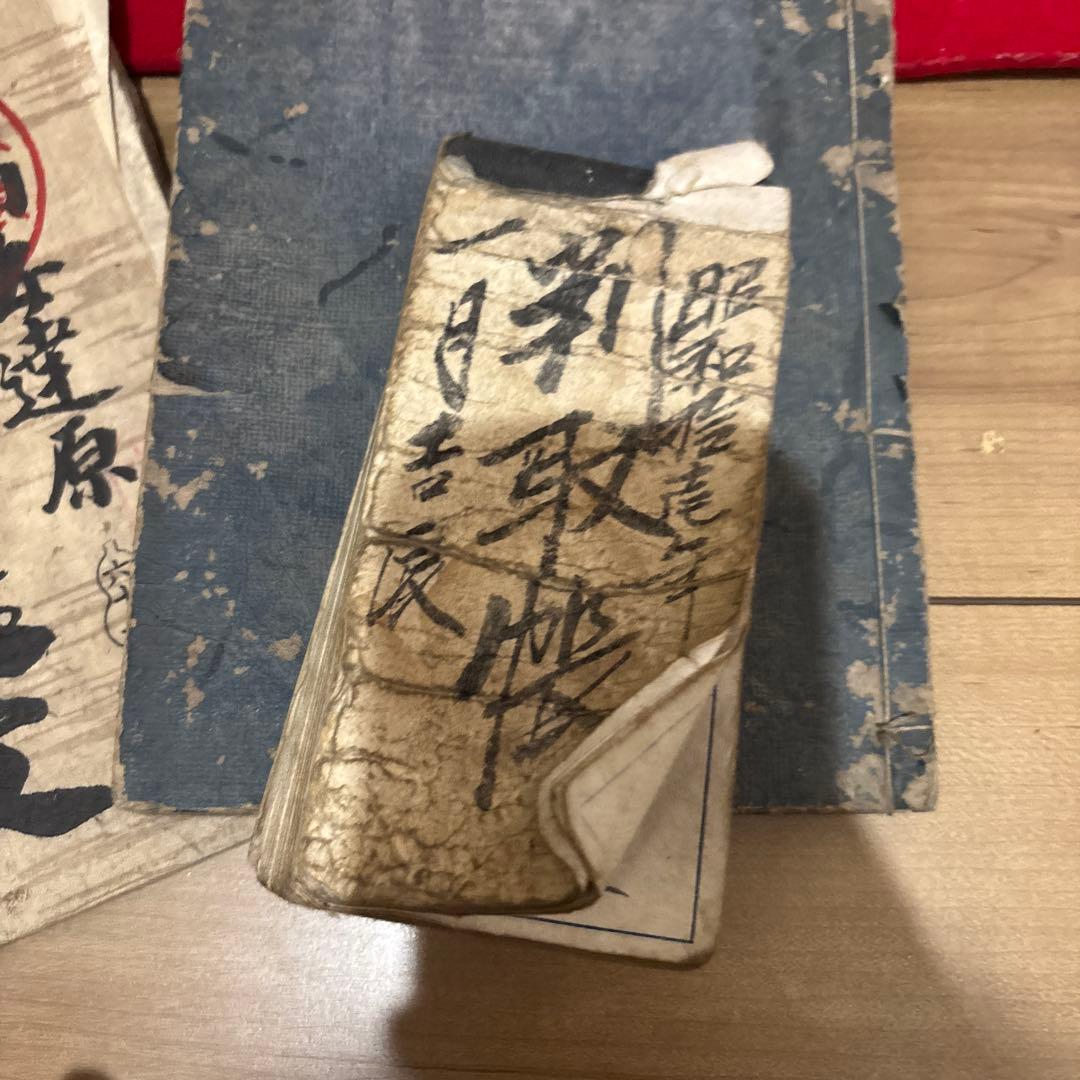 昭和拾壱年
判取帳
一月吉辰
達原